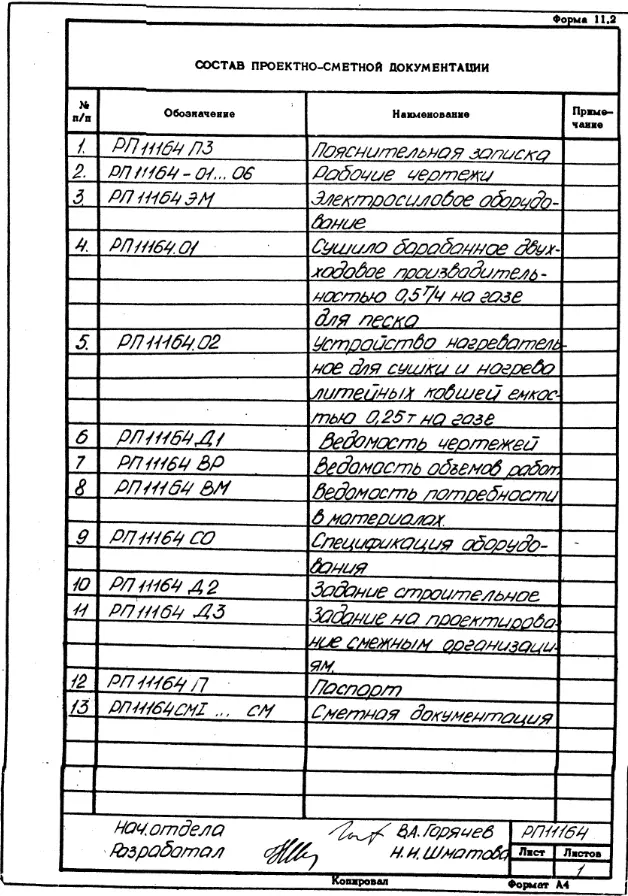 Форма 11.2
СОСТАВ ПРОЕКТНО-СМЕТНОЙ ДОКУМЕНТАЦИИ
№ п/п Обозначение Наименование Примечание
1. РП 11164 ПЗ Пояснительная записка
2. РП 11164-01... 06 Рабочие чертежи
3 РП 11164 ЭМ Электросиловое оборудо-
вание
4. РП 11164.01 Сушило барабанное двух-
ходовое производитель-
ностью 0,5 т/ч на газе
для песка
5. РП 11164.02 Устройство нагреватель-
ное для сушки и нагрева
литейных ковшей емкос-
тью 0,25 т на газе
6 РП 11164 Д1 Ведомость чертежей
7 РП 11164 ВР Ведомость объемов работ
8 РП 11164 ВМ Ведомость потребности
в материалах.
9 РП 11164 СО Спецификация оборудо-
вания
10 РП 11164 Д2 Задание строительное
11 РП 11164 Д3 Задание на проектирова-
ние смежным организаци-
ям.
12 РП 11164 П Паспорт
13 РП 11164 СМ1 ... СМ Сметная документация
Нач. отдела В.А. Горячев РП 11164
Разработал Н.И. Шматова Лист Листов
1
Копировал Формат А4